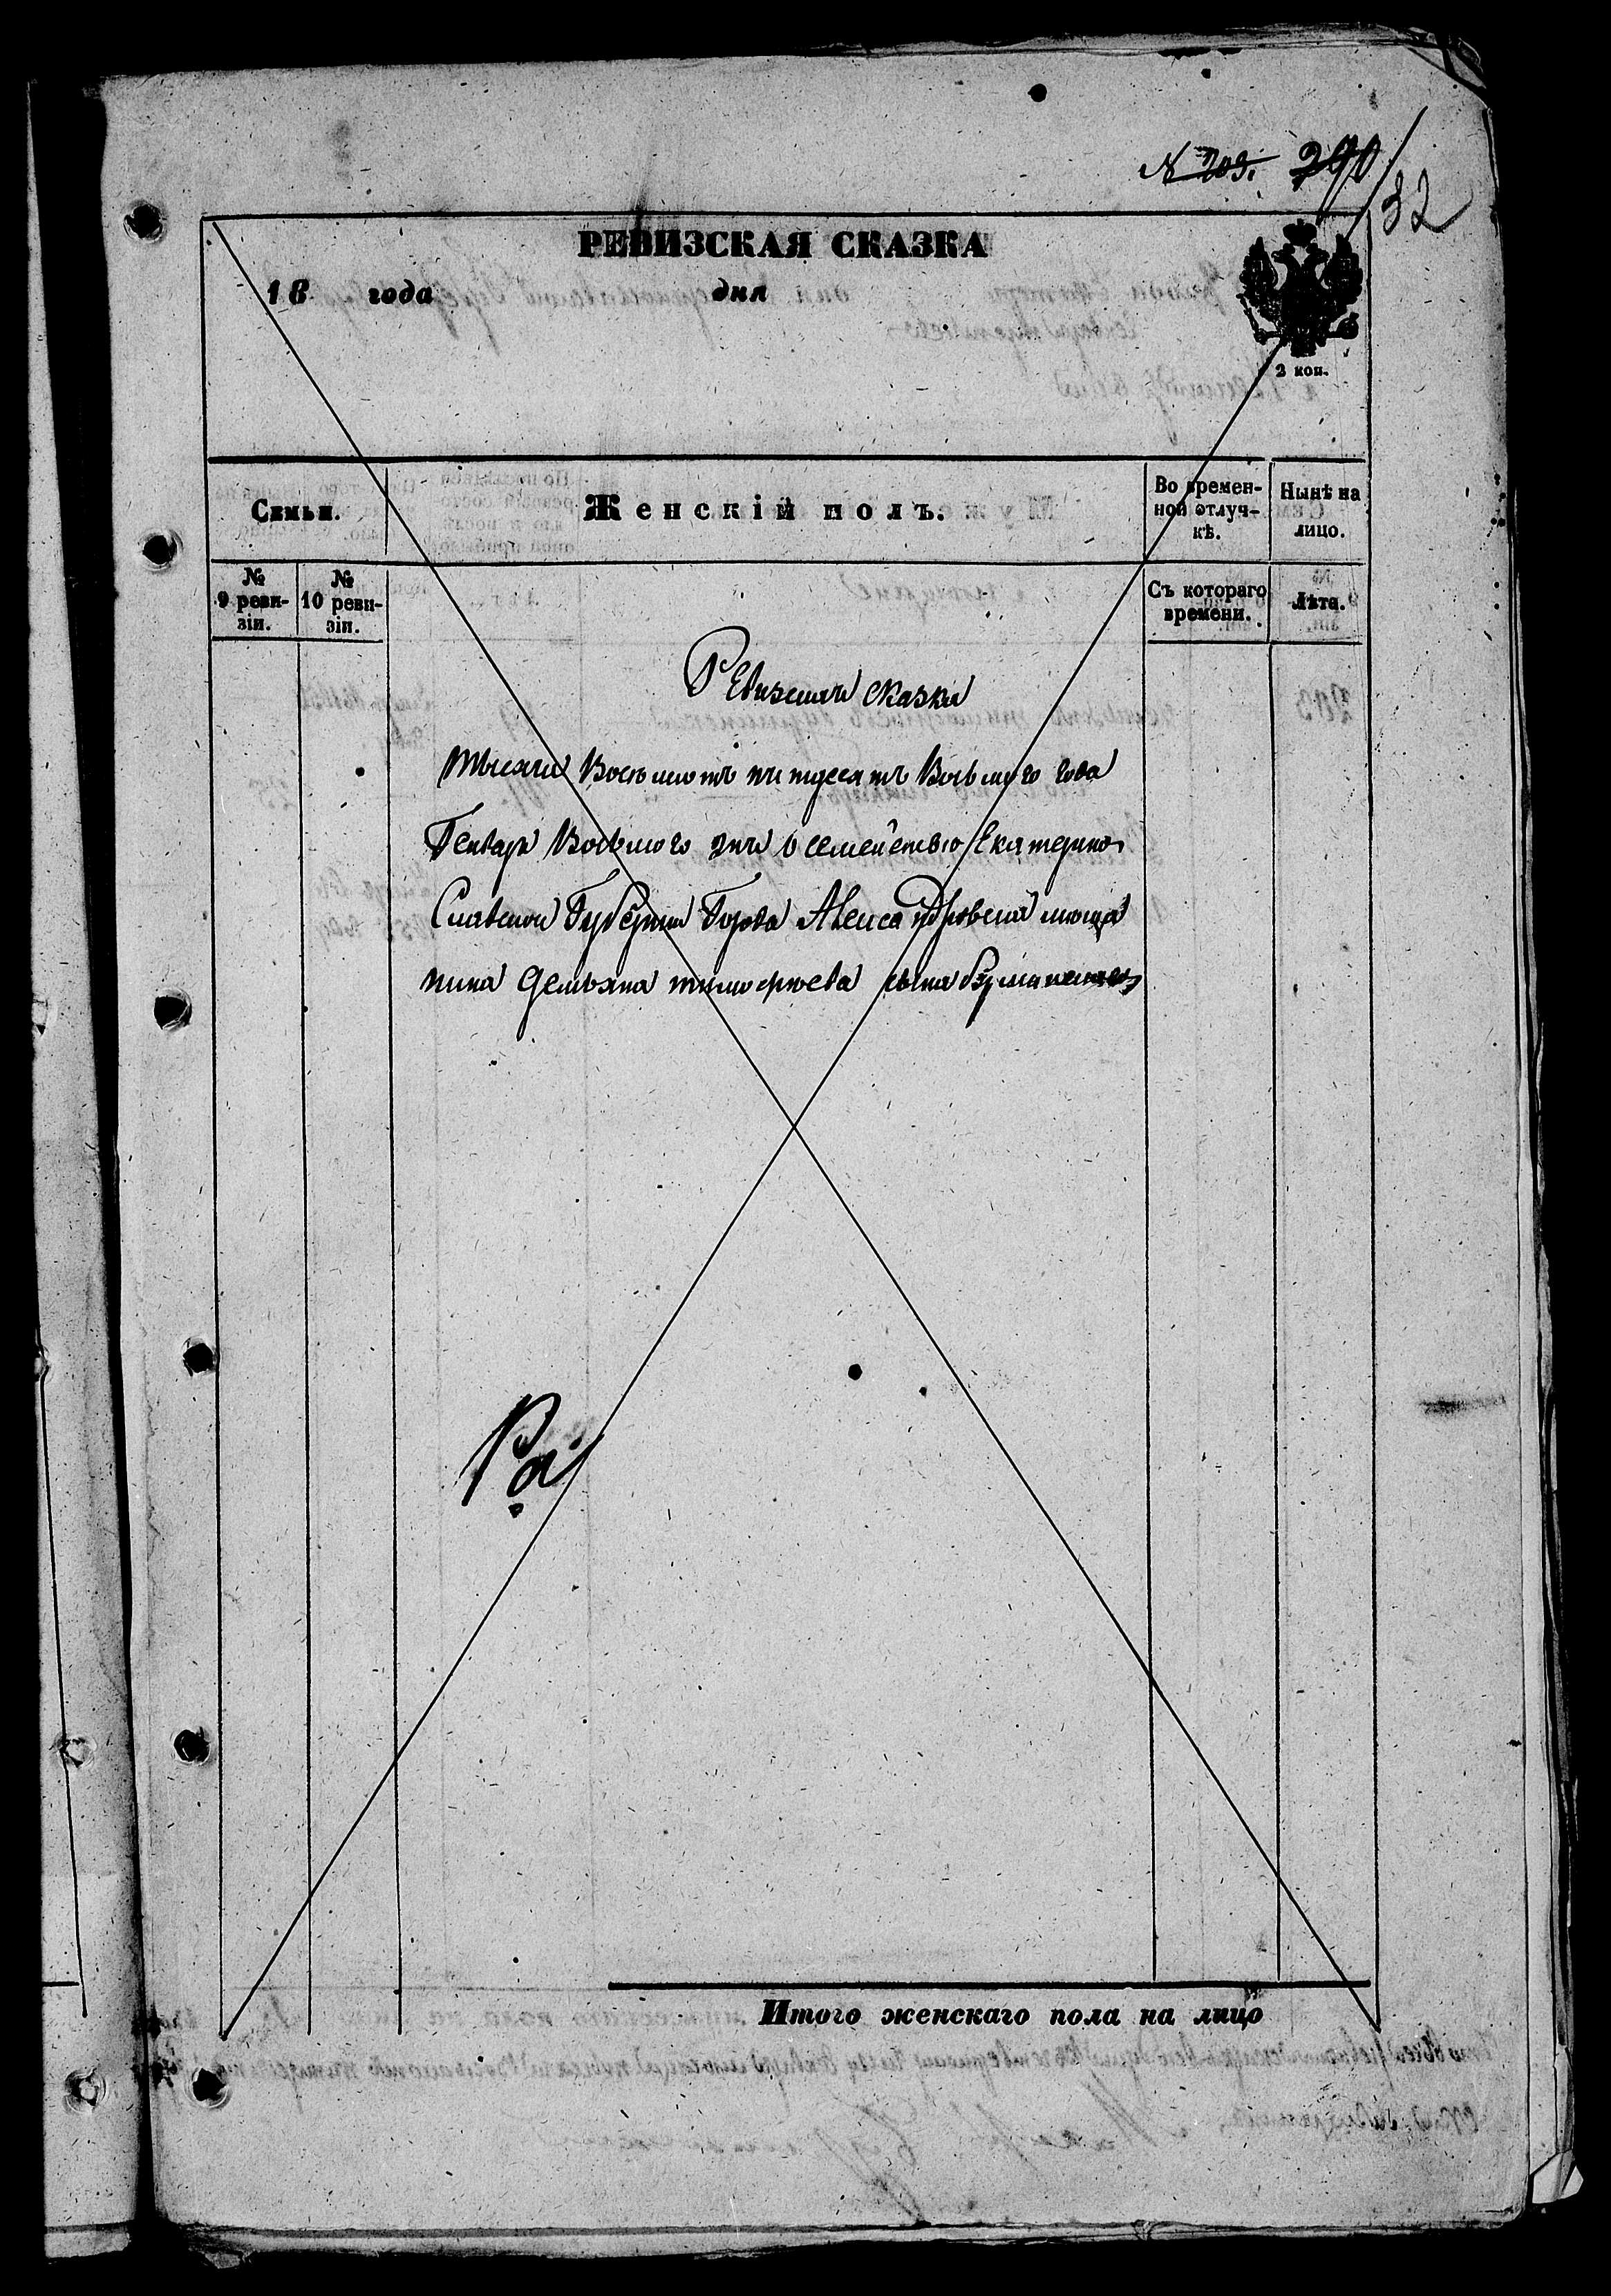 № 203. 290
32
РЕВИЗСКАЯ СКАЗКА
18 года дня
2 коп.
Семьи.
Женскій полъ.
Во времен-
ной отлуч-
кѣ.
Нынѣ на
лицо.
№
9 реви-
зіи.
№
10 реви-
зіи.
Съ котораго
времени.
Лѣта.
Ревизская сказка
тысяча Восемсотъ пятдесятъ Восьмого года
Генваря Восьмого дня о семействѣ Екатерино
Славской Губерніи Города Алексадровска мѣща
нина Демьяна тимофѣева сына
Ра
Итого женскаго пола на лицо